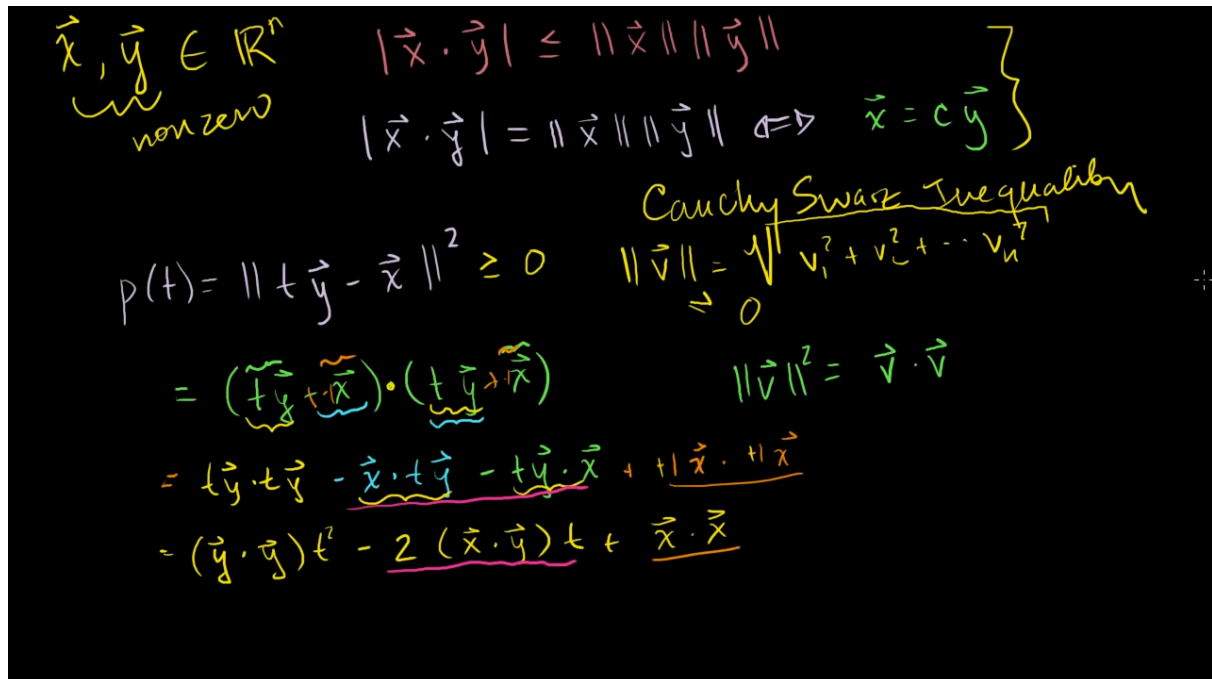 x⃗, y⃗ ∈ ℝⁿ |x⃗ · y⃗| ≤ ||x⃗|| ||y⃗||
nonzero
|x⃗ · y⃗| = ||x⃗|| ||y⃗|| ⇔ x⃗ = c y⃗ }
Cauchy Swarz Inequality
p(t) = ||t y⃗ - x⃗||² ≥ 0 ||v⃗|| = √v₁² + v₂² + ⋯ vₙ²
≥ 0
= (t y⃗ + -1x⃗) · (t y⃗ + -1x⃗) ||v⃗||² = v⃗ · v⃗
= t y⃗ · t y⃗ - x⃗ · t y⃗ - t y⃗ · x⃗ + +1 x⃗ · +1 x⃗
= (y⃗ · y⃗) t² - 2 (x⃗ · y⃗) t + x⃗ · x⃗